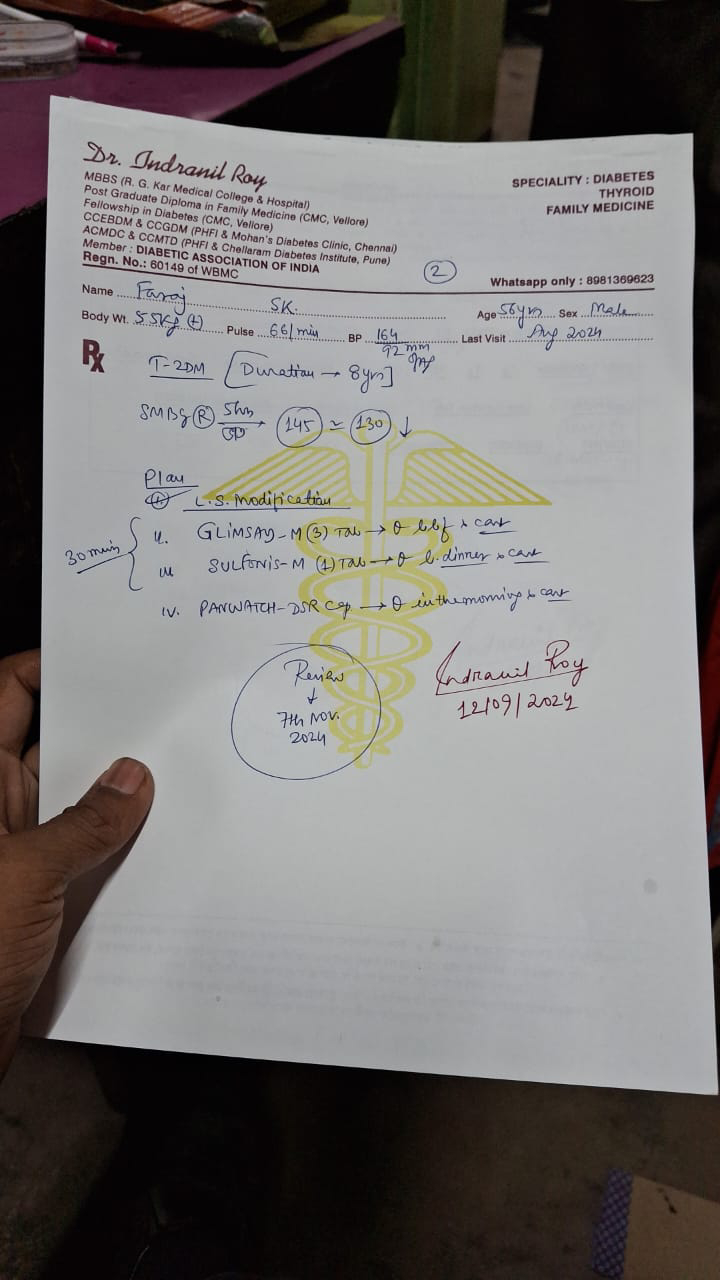 Dr. Indranil Roy
MBBS (R. G. Kar Medical College & Hospital)
Post Graduate Diploma in Family Medicine (CMC, Vellore)
Fellowship in Diabetes (CMC, Vellore)
CCEBDM & CCGDM (PHFI & Mohan's Diabetes Clinic, Chennai)
ACMDC & CCMTD (PHFI & Chellaram Diabetes Institute, Pune)
Member : DIABETIC ASSOCIATION OF INDIA
Regn. No.: 60149 of WBMC
SPECIALITY : DIABETES
THYROID
FAMILY MEDICINE
2
Whatsapp only : 8981369623
Name Faraj SK. Age 56yrs Sex Male
Body Wt. 55Kg (+) Pulse 66/min BP 164/92 mm of Hg Last Visit Aug 2024
Rx
T-2DM [Duration → 8yrs]
SMBG (R) 145 ≃ 130 ↓
Plan
L.S. Modification
30 mins
ii. GLIMSAD-M (3) Tab → bbf x cont
iii SULFONIS-M (1) Tab → b. dinner x cont
iv. PANWATCH-DSR Cap. → in the morning x cont
Review
↓
7th NOV.
2024
Indranil Roy
12/09/2024